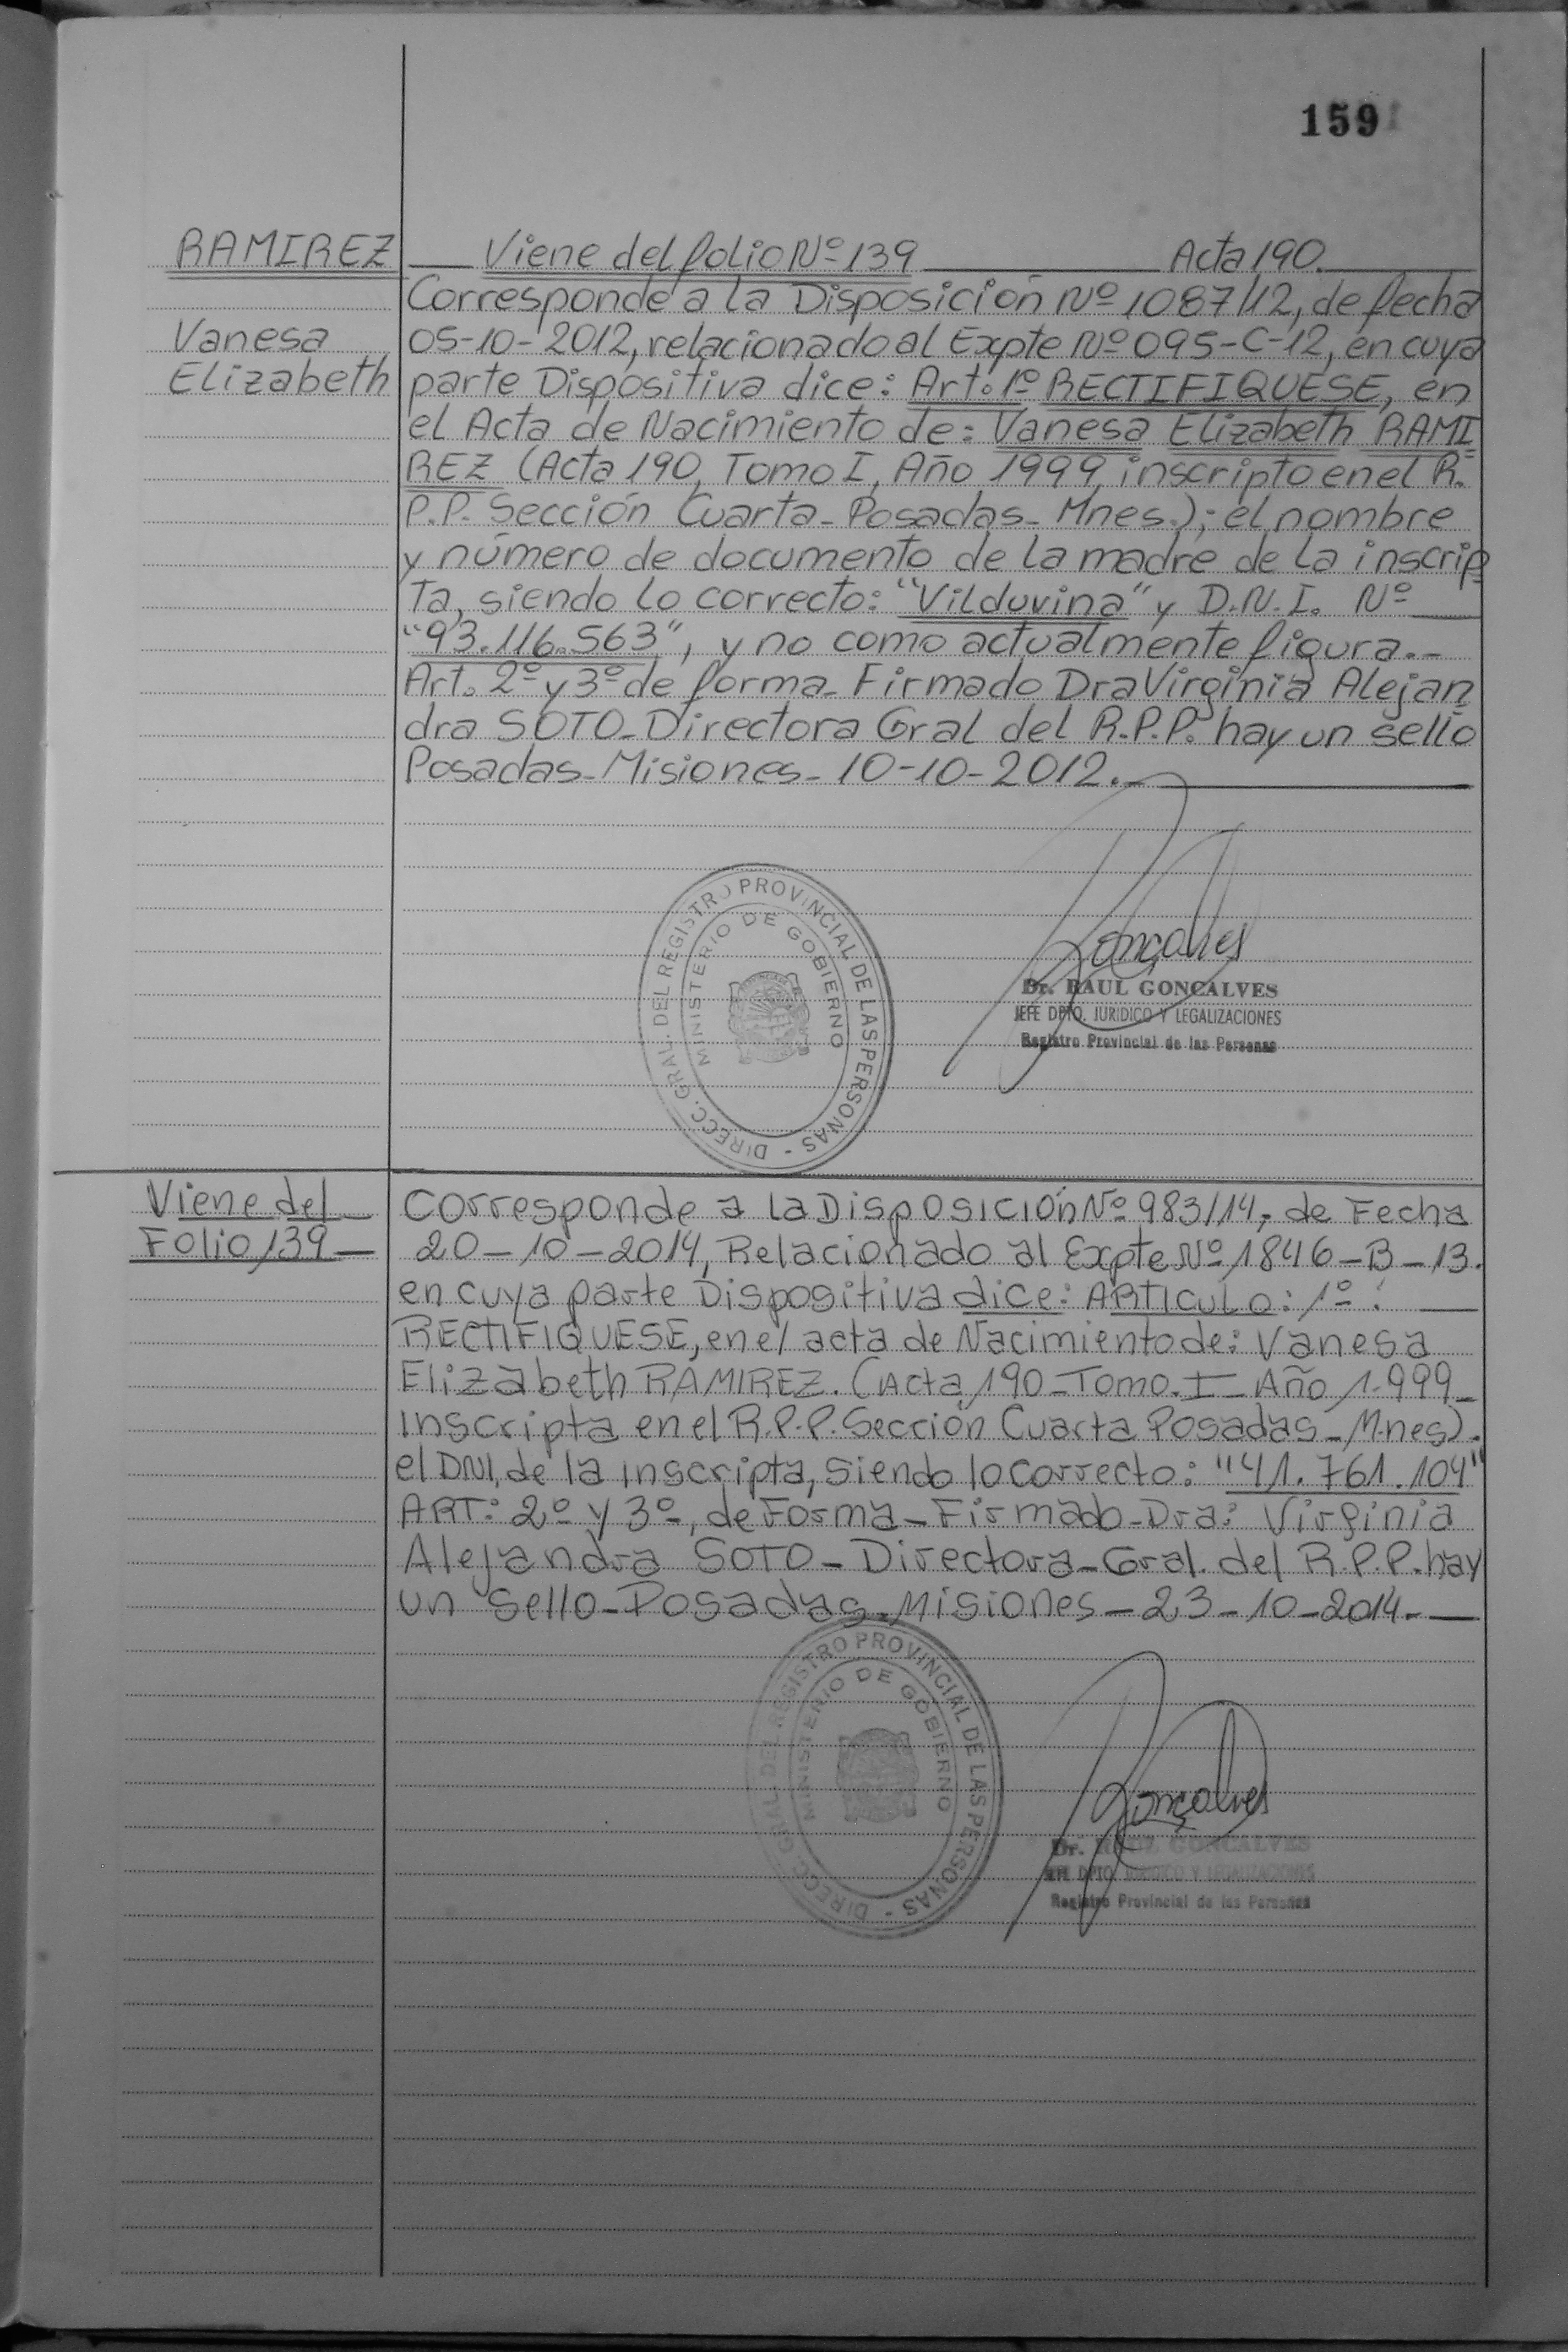 159
RAMIREZ
Vanesa
Elizabeth
Viene del folio Nº 139 Acta 190.
Corresponde a la Disposición Nº 1087/12, de fecha
05-10-2012, relacionado al Expte Nº 095-C-12, en cuya
parte Dispositiva dice: Art. 1º RECTIFIQUESE, en
el Acta de Nacimiento de: Vanesa Elizabeth RAMI
REZ (Acta 190, Tomo I, Año 1999, inscripto en el R.
P.P. Sección Cuarta- Posadas- Mnes.); el nombre
y número de documento de la madre de la inscrip
ta, siendo lo correcto: "Vilduvina" y D.N.I. Nº
"93.116.563", y no como actualmente figura.-
Art. 2º y 3º de forma- Firmado Dra Virginia Alejan
dra SOTO- Directora Gral del R.P.P. hay un sello
Posadas- Misiones- 10-10-2012.-
DIRECC. GRAL. DEL REGISTRO PROVINCIAL DE LAS PERSONAS -
MINISTERIO DE GOBIERNO
Gonçalves
Dr. RAUL GONCALVES
JEFE DPTO. JURIDICO Y LEGALIZACIONES
Registro Provincial de las Personas
Viene del
Folio 139
Corresponde a la Disposición Nº 983/14, de Fecha
20-10-2014, Relacionado al Expte Nº 1846-B-13.
en cuya parte Dispositiva dice: ARTICULO: 1º:
RECTIFIQUESE, en el acta de Nacimiento de: Vanesa
Elizabeth RAMIREZ. (Acta 190-Tomo. I- Año 1.999-
Inscripta en el R.P.P. Sección Cuarta Posadas- Mnes).
el DNI, de la Inscripta, siendo lo correcto: "41.761.104"
ART: 2º y 3º, de Forma- Firmado- Dra: Virginia
Alejandra SOTO- Directora- Gral. del R.P.P. hay
un Sello- Posadas- Misiones- 23-10-2014.-
DIRECC. GRAL. DEL REGISTRO PROVINCIAL DE LAS PERSONAS -
MINISTERIO DE GOBIERNO
Gonçalves
Dr. RAUL GONCALVES
JEFE DPTO. JURIDICO Y LEGALIZACIONES
Registro Provincial de las Personas